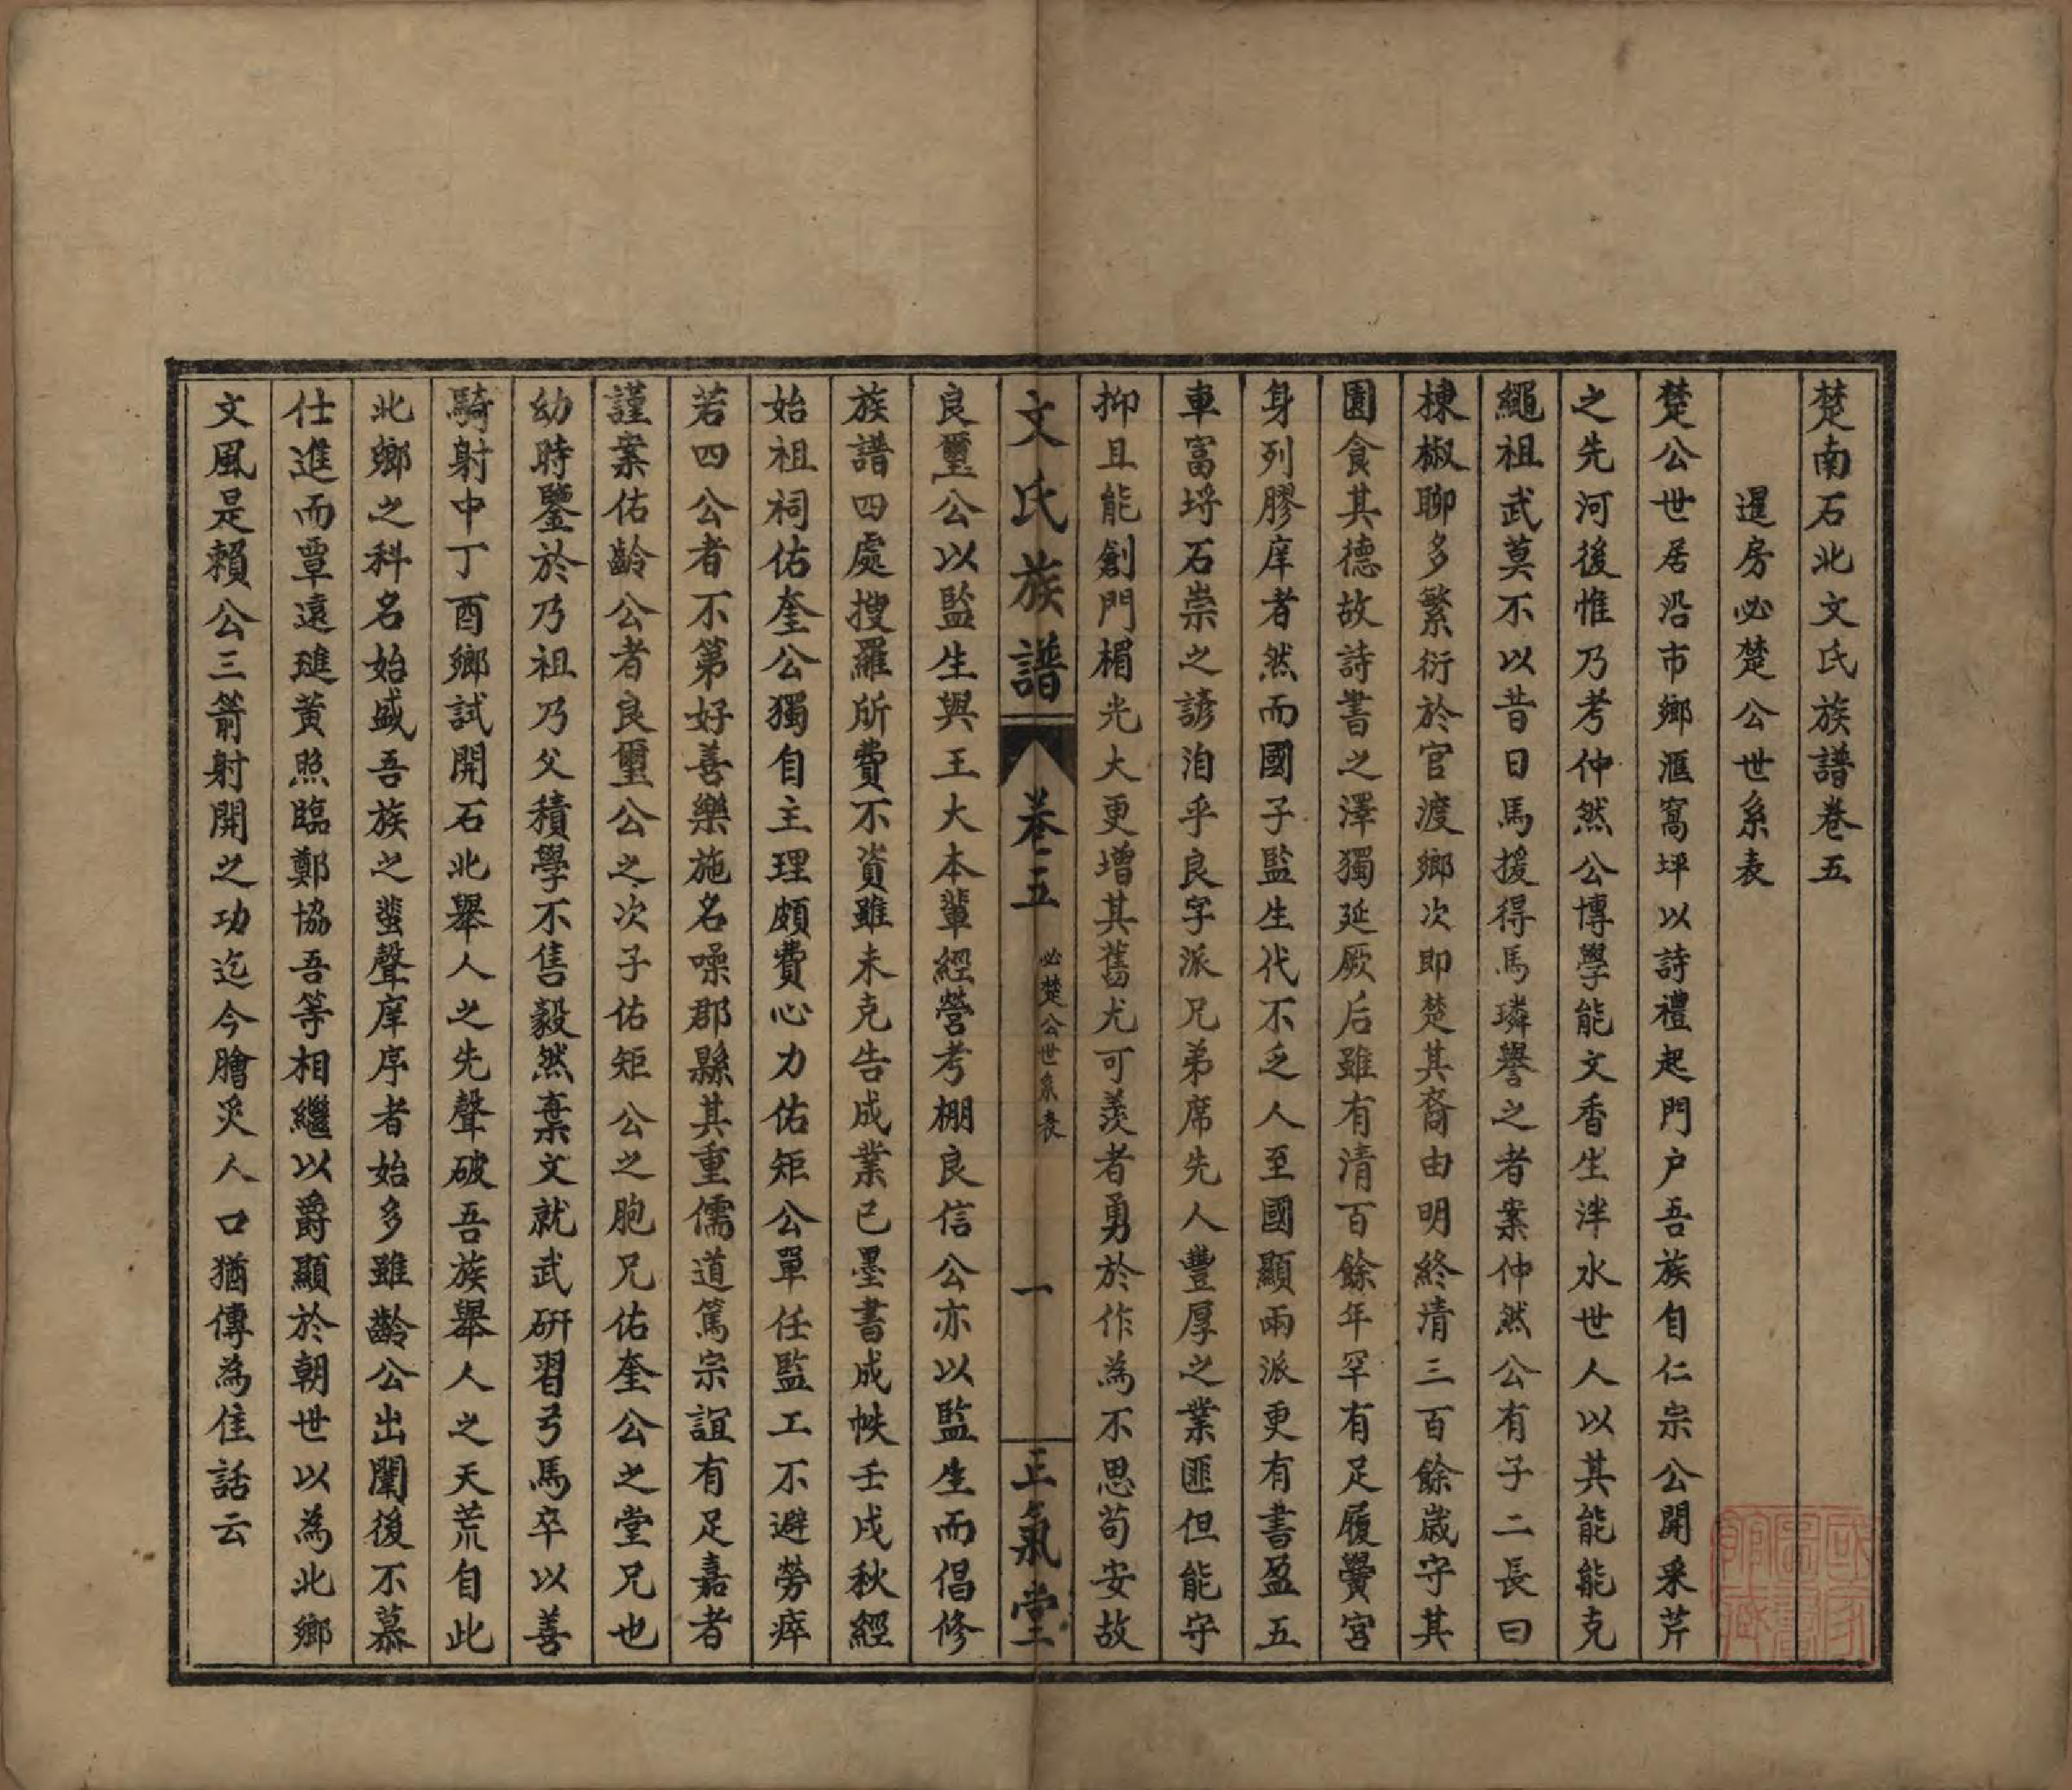 楚南石北文氏族譜卷五
暹房必楚公世系表
楚公世居沿市鄉滙窩坪以詩禮起門户吾族自仁宗公開采芹
之先河後惟乃考仲然公博學能文香生泮水世人以其能能克
繩祖武莫不以昔日馬援得馬璘譽之者案仲然公有子二長曰
棟椒聊多繁衍於官渡鄉次即楚其裔由明終清三百餘歲守其
園食其德故詩書之澤獨延厥后雖有清百餘年罕有足履黌宮
身列膠庠者然而國子監生代不乏人至國顯兩派更有書盈五
車富埒石崇之諺洎乎良字派兄弟席先人豐厚之業匪但能守
抑且能創門楣光大更增其舊尤可羨者勇於作為不思苟安故
文氏族譜 卷五 必楚公世系表 一 正氣堂
良璽公以監生與王大本輩經營考棚良信公亦以監生而倡修
族譜四處搜羅所費不資雖未克告成業已墨書成帙壬戌秋經
始祖祠佑奎公獨自主理頗費心力佑矩公單任監工不避勞瘁
若四公者不第好善樂施名噪郡縣其重儒道篤宗誼有足嘉者
謹案佑齡公者良璽公之次子佑矩公之胞兄佑奎公之堂兄也
幼時鑒於乃祖乃父積學不售毅然棄文就武研習弓馬卒以善
騎射中丁酉鄉試開石北舉人之先聲破吾族舉人之天荒自此
北鄉之科名始盛吾族之蜚聲庠序者始多雖齡公出闈後不慕
仕進而覃遠璡黃照臨鄭協吾等相繼以爵顯於朝世以為北鄉
文風是賴公三箭射開之功迄今膾炙人口猶傳為佳話云